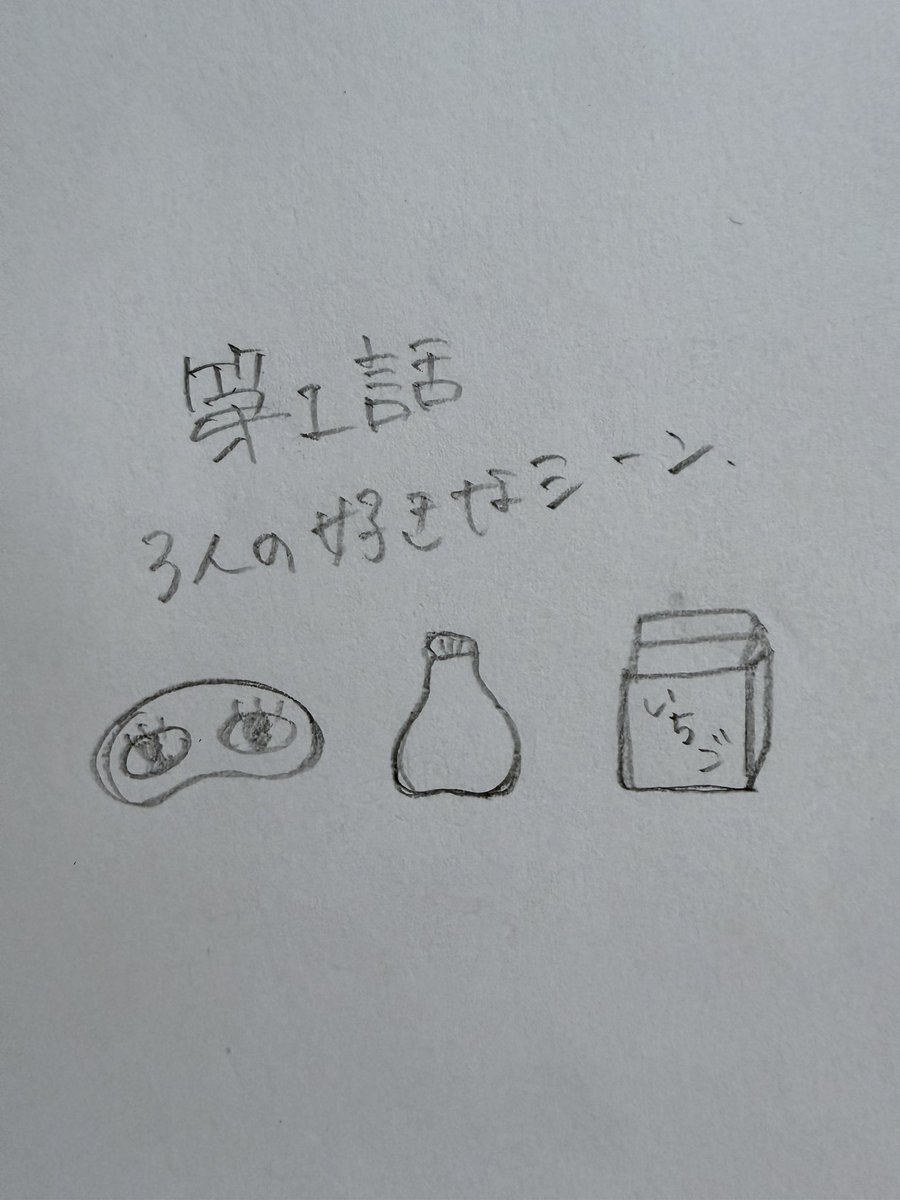 第1話
3人の好きなシーン.
いちご